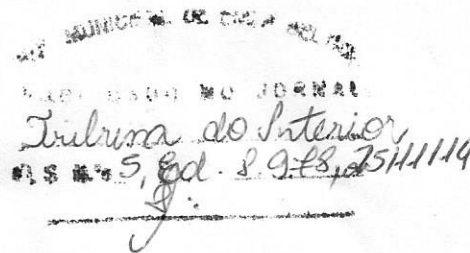 MUNICIPAL DE
PUBLICADO NO JORNAL
Tribuna do Interior
FLS Nº 5, Ed. 8.978, 25/11/14